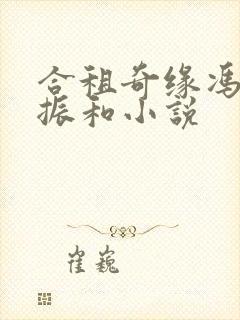 合租奇缘冯
振和小説
崔巍